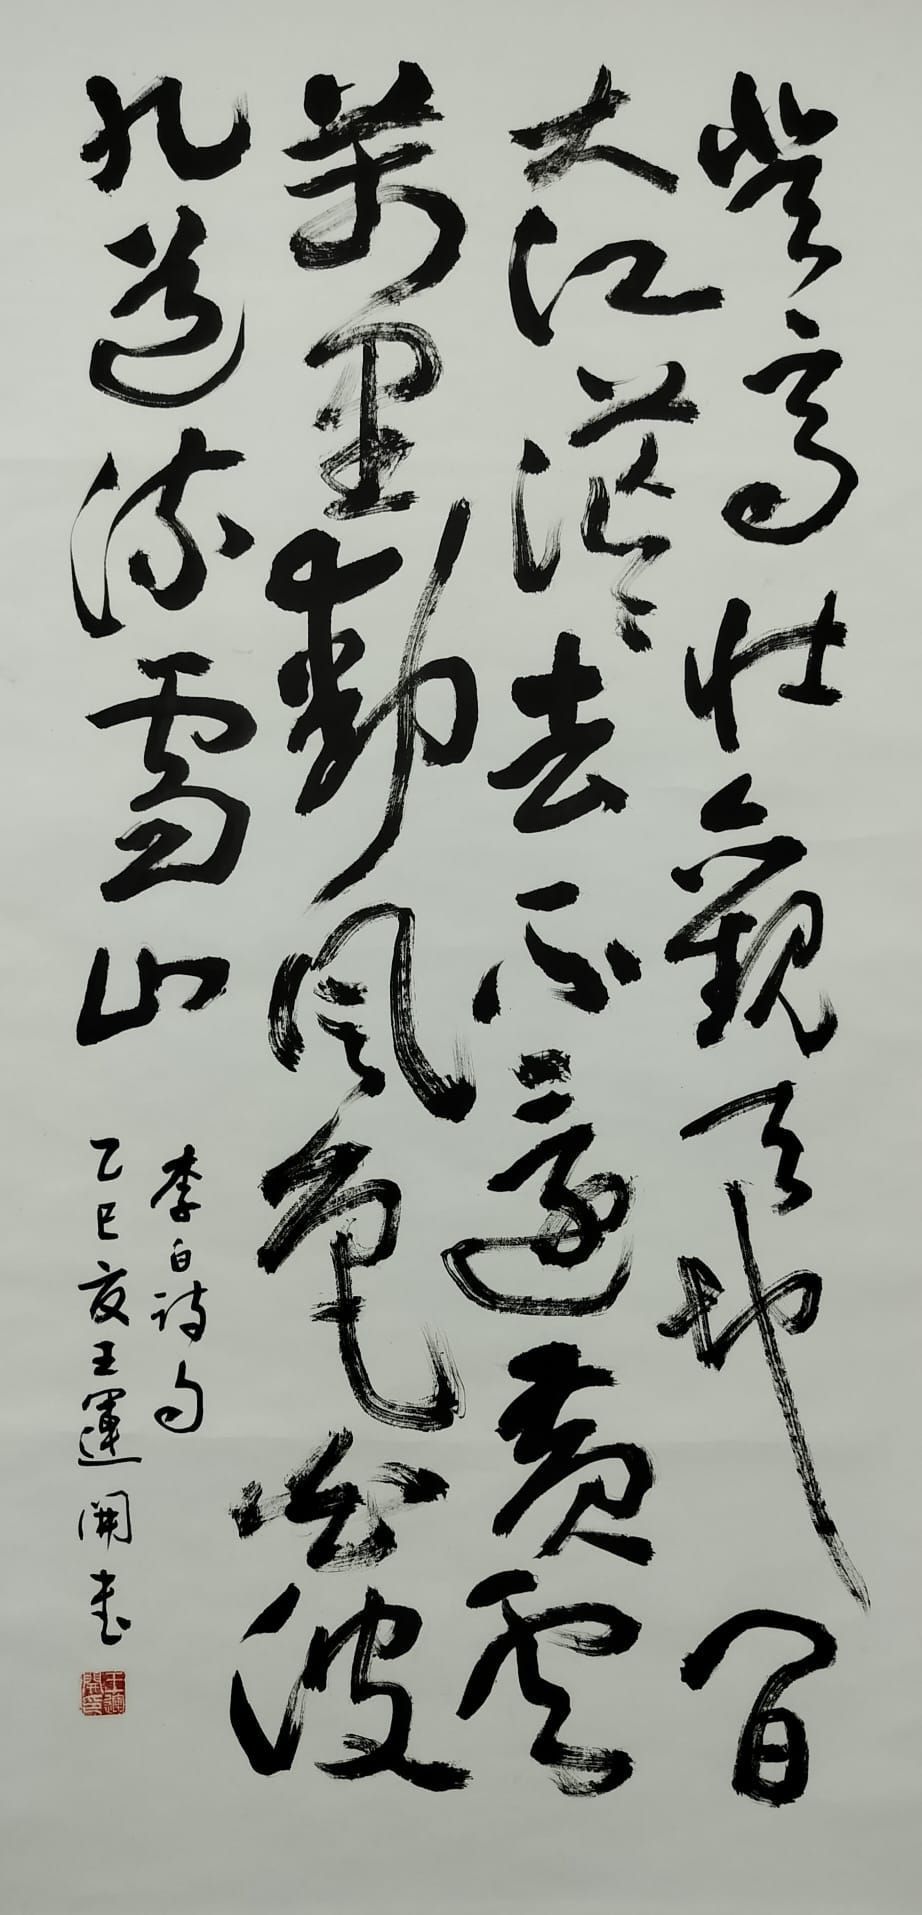 登高壮觀天地間
大江茫茫去不還黄雲
萬里動風色白波
九道流雪山
李白詩句
乙巳夏王運開書
王運開印